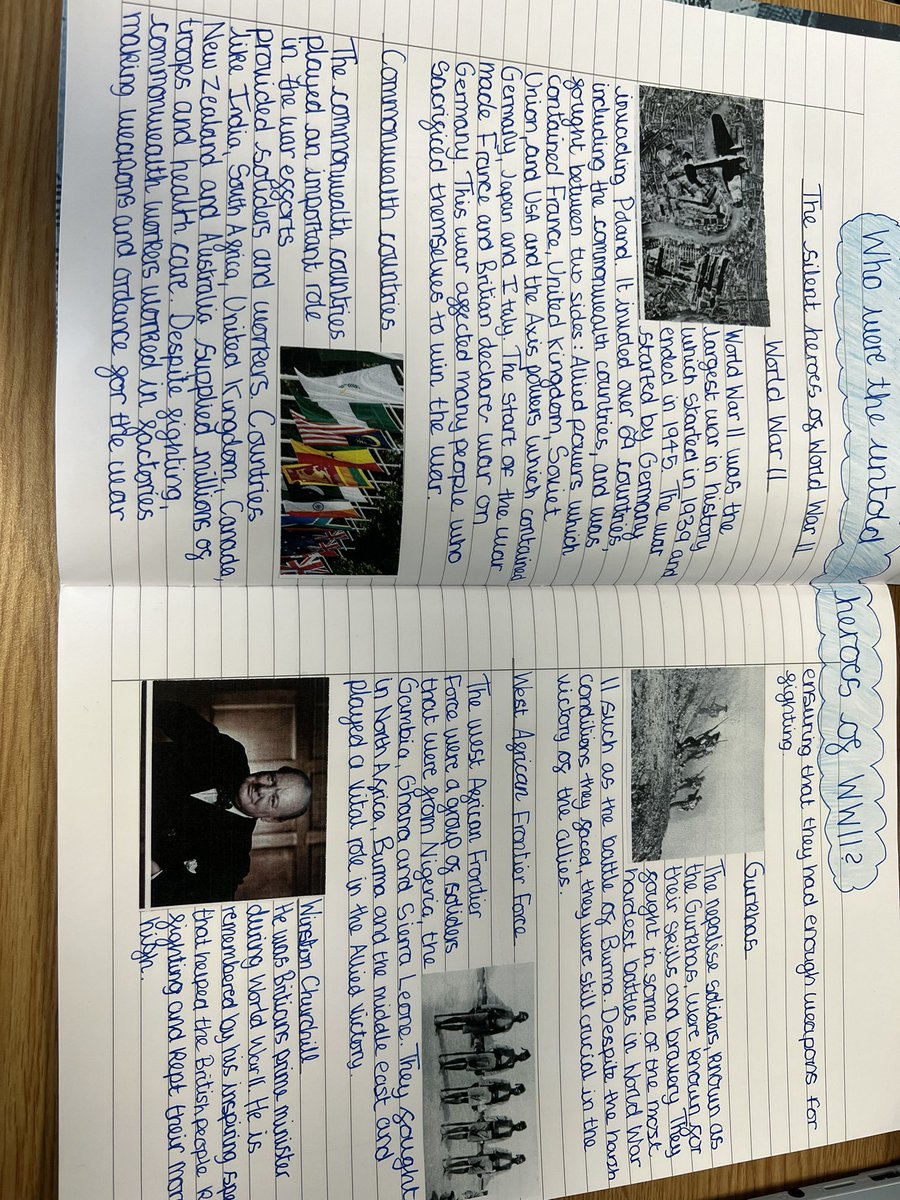 Who were the untold heroes of WWII?
The silent heroes of World War II
World War II
World War II was the
largest war in history
which started in 1939 and
ended in 1945. The war
started by Germany
invading Poland. It involved over 20 countries,
including the commonwealth countries, and was
fought between two sides: Allied powers which
contained France, United Kingdom, Soviet
Union and USA and the Axis powers which contained
Germany, Japan and Italy. The start of the war
made France and Britian declare war on
Germany. This war affected many people who
sacrificed themselves to win the war.
Commonwealth countries
The commonwealth countries
played an important role
in the war efforts
provided soliders and workers. Countries
like India, South Africa, United Kingdom, Canada,
New Zealand and Australia supplied millions of
troops and health care. Despite fighting,
commonwealth workers worked in factories
making weapons and ordane for the war
ensuring that they had enough weapons for
fighting
Gurkhas
The nepalise soliders, known as
the Gurkhas, were known for
their skills and bravery. They
fought in some of the most
hardest battles in World War
II such as the battle of Burma. Despite the harsh
conditions they faced, they were still crucial in the
victory of the allies.
West African Frontier Force
The west African Frontier
Force were a group of soliders
that were from Nigeria, the
Gambia, Ghana and Sierra Leone. They fought
in North Africa, Burma and the middle east and
played a vital role in the Allied victory.
Winston Churchill
He was Britians prime minister
during World War II. He is
remembered by his inspiring spe
that helped the British people k
fighting and kept their mor
high.